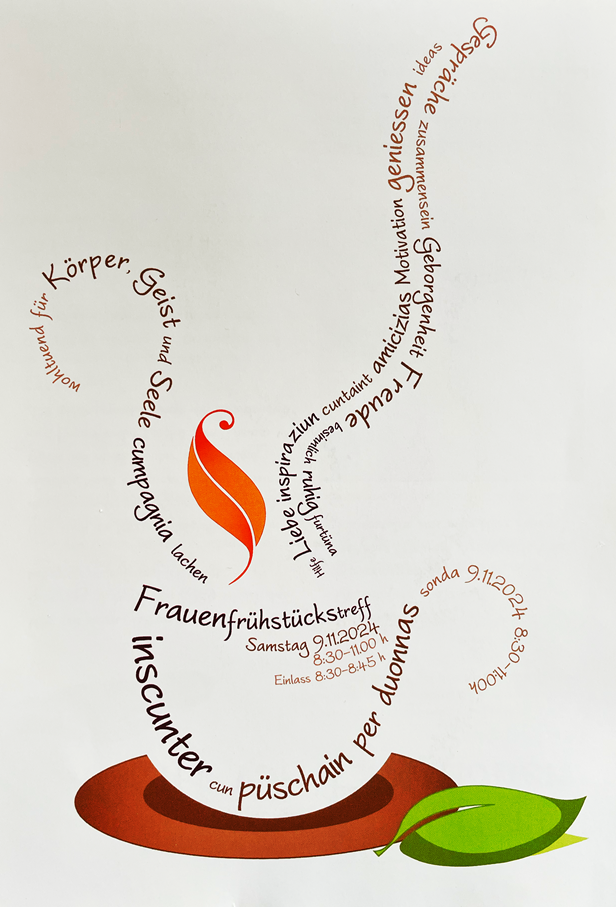 Gespräche zusammensein Geborgenheit Freude besinnlich ruhig furtüna
Hilfe Liebe inspiraziun cuntaint amicizias Motivation geniessen ideas
wohltuend für Körper, Geist und Seele cumpagnia lachen
Frauenfrühstückstreff
Samstag 9.11.2024
8:30-11.00 h
Einlass 8:30-8:45 h
inscunter cun püschain per duonnas sonda 9.11.2024 8:30-11:00h